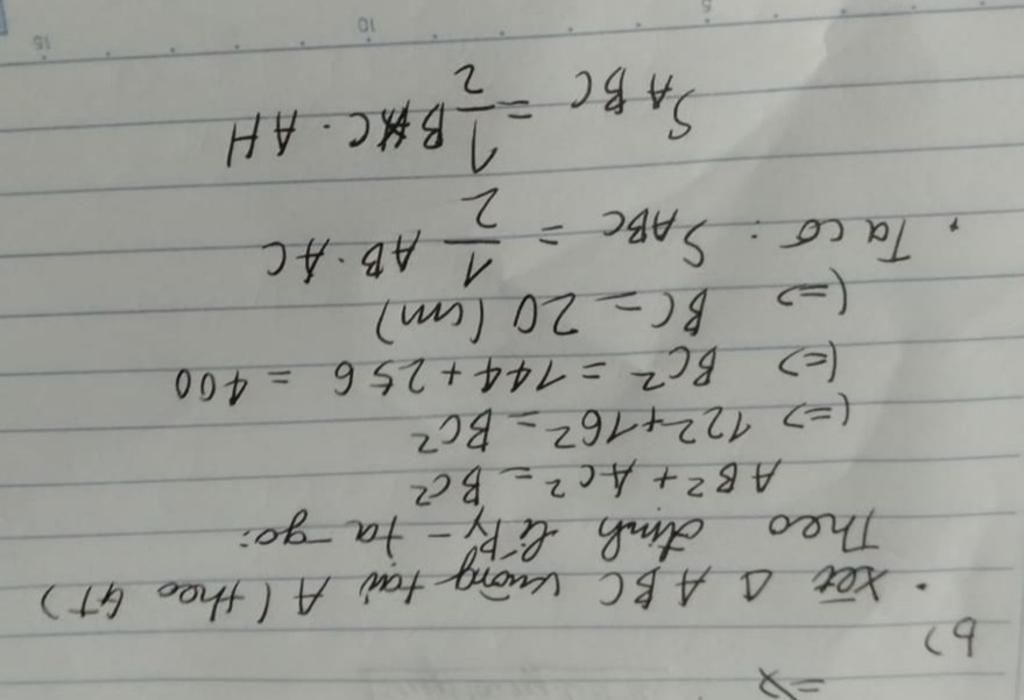 = x
b)
• Xét Δ ABC vuông tại A (theo GT)
Theo định lí Py-ta-go:
AB² + AC² = BC²
(=> 12² + 16² = BC²
(=> BC² = 144 + 256 = 400
(=> BC = 20 (cm)
• Ta có: S_ABC = 1/2 AB . AC
S_ABC = 1/2 BC . AH
5 10 15